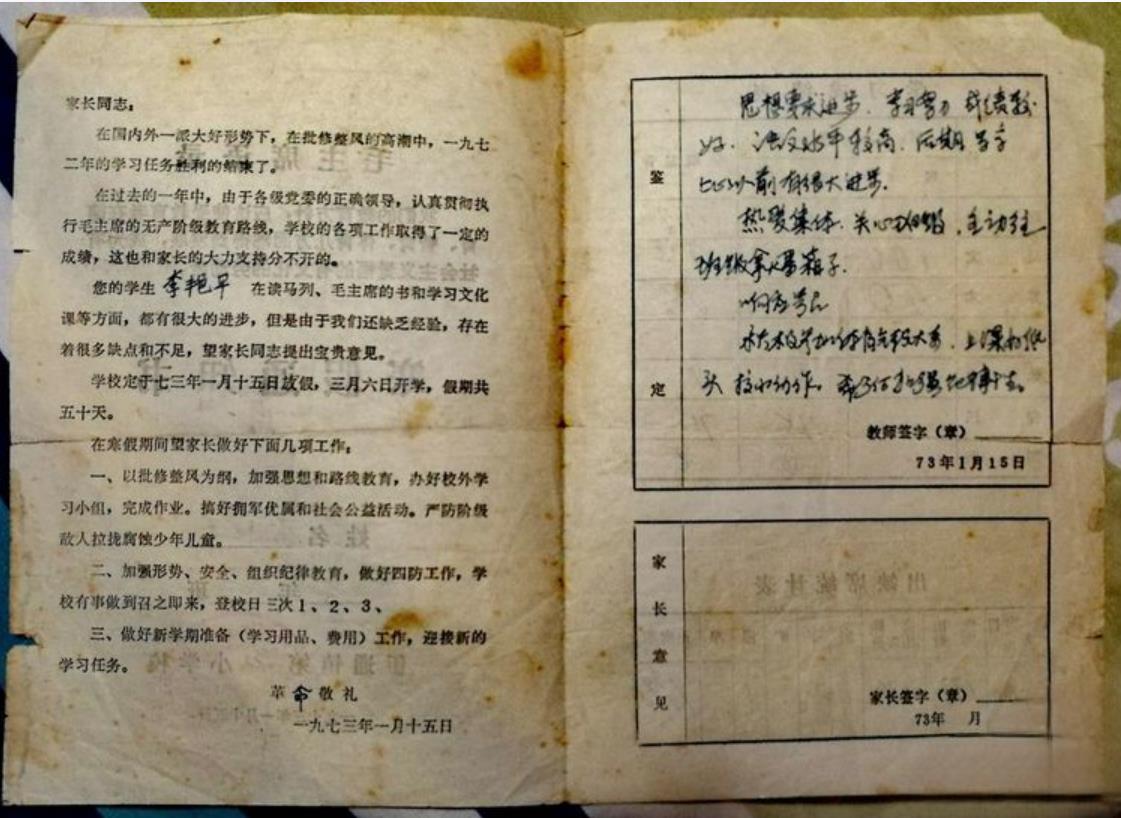 家长同志：
在国内外一派大好形势下，在批修整风的高潮中，一九七
二年的学习任务胜利的结束了。
在过去的一年中，由于各级党委的正确领导，认真贯彻执
行毛主席的无产阶级教育路线，学校的各项工作取得了一定的
成绩，这也和家长的大力支持分不开的。
您的学生 李艳早 在读马列、毛主席的书和学习文化
课等方面，都有很大的进步，但是由于我们还缺乏经验，存在
着很多缺点和不足，望家长同志提出宝贵意见。
学校定于七三年一月十五日放假，三月六日开学，假期共
五十天。
在寒假期间望家长做好下面几项工作。
一、以批修整风为纲，加强思想和路线教育，办好校外学
习小组，完成作业。搞好拥军优属和社会公益活动。严防阶级
敌人拉拢腐蚀少年儿童。
二、加强形势、安全、组织纪律教育，做好四防工作，学
校有事做到召之即来，登校日三次1、2、3、
三、做好新学期准备（学习用品、费用）工作，迎接新的
学习任务。
革命敬礼
一九七三年一月十五日
鉴定
思想要求进步．学习努力 成绩较
好．语文水平较高．后期写字
比以前有很大进步．
热爱集体．关心班级．主动往
班级拿
教师签字（章）
73年1月15日
家长意见
家长签字（章）
73年 月